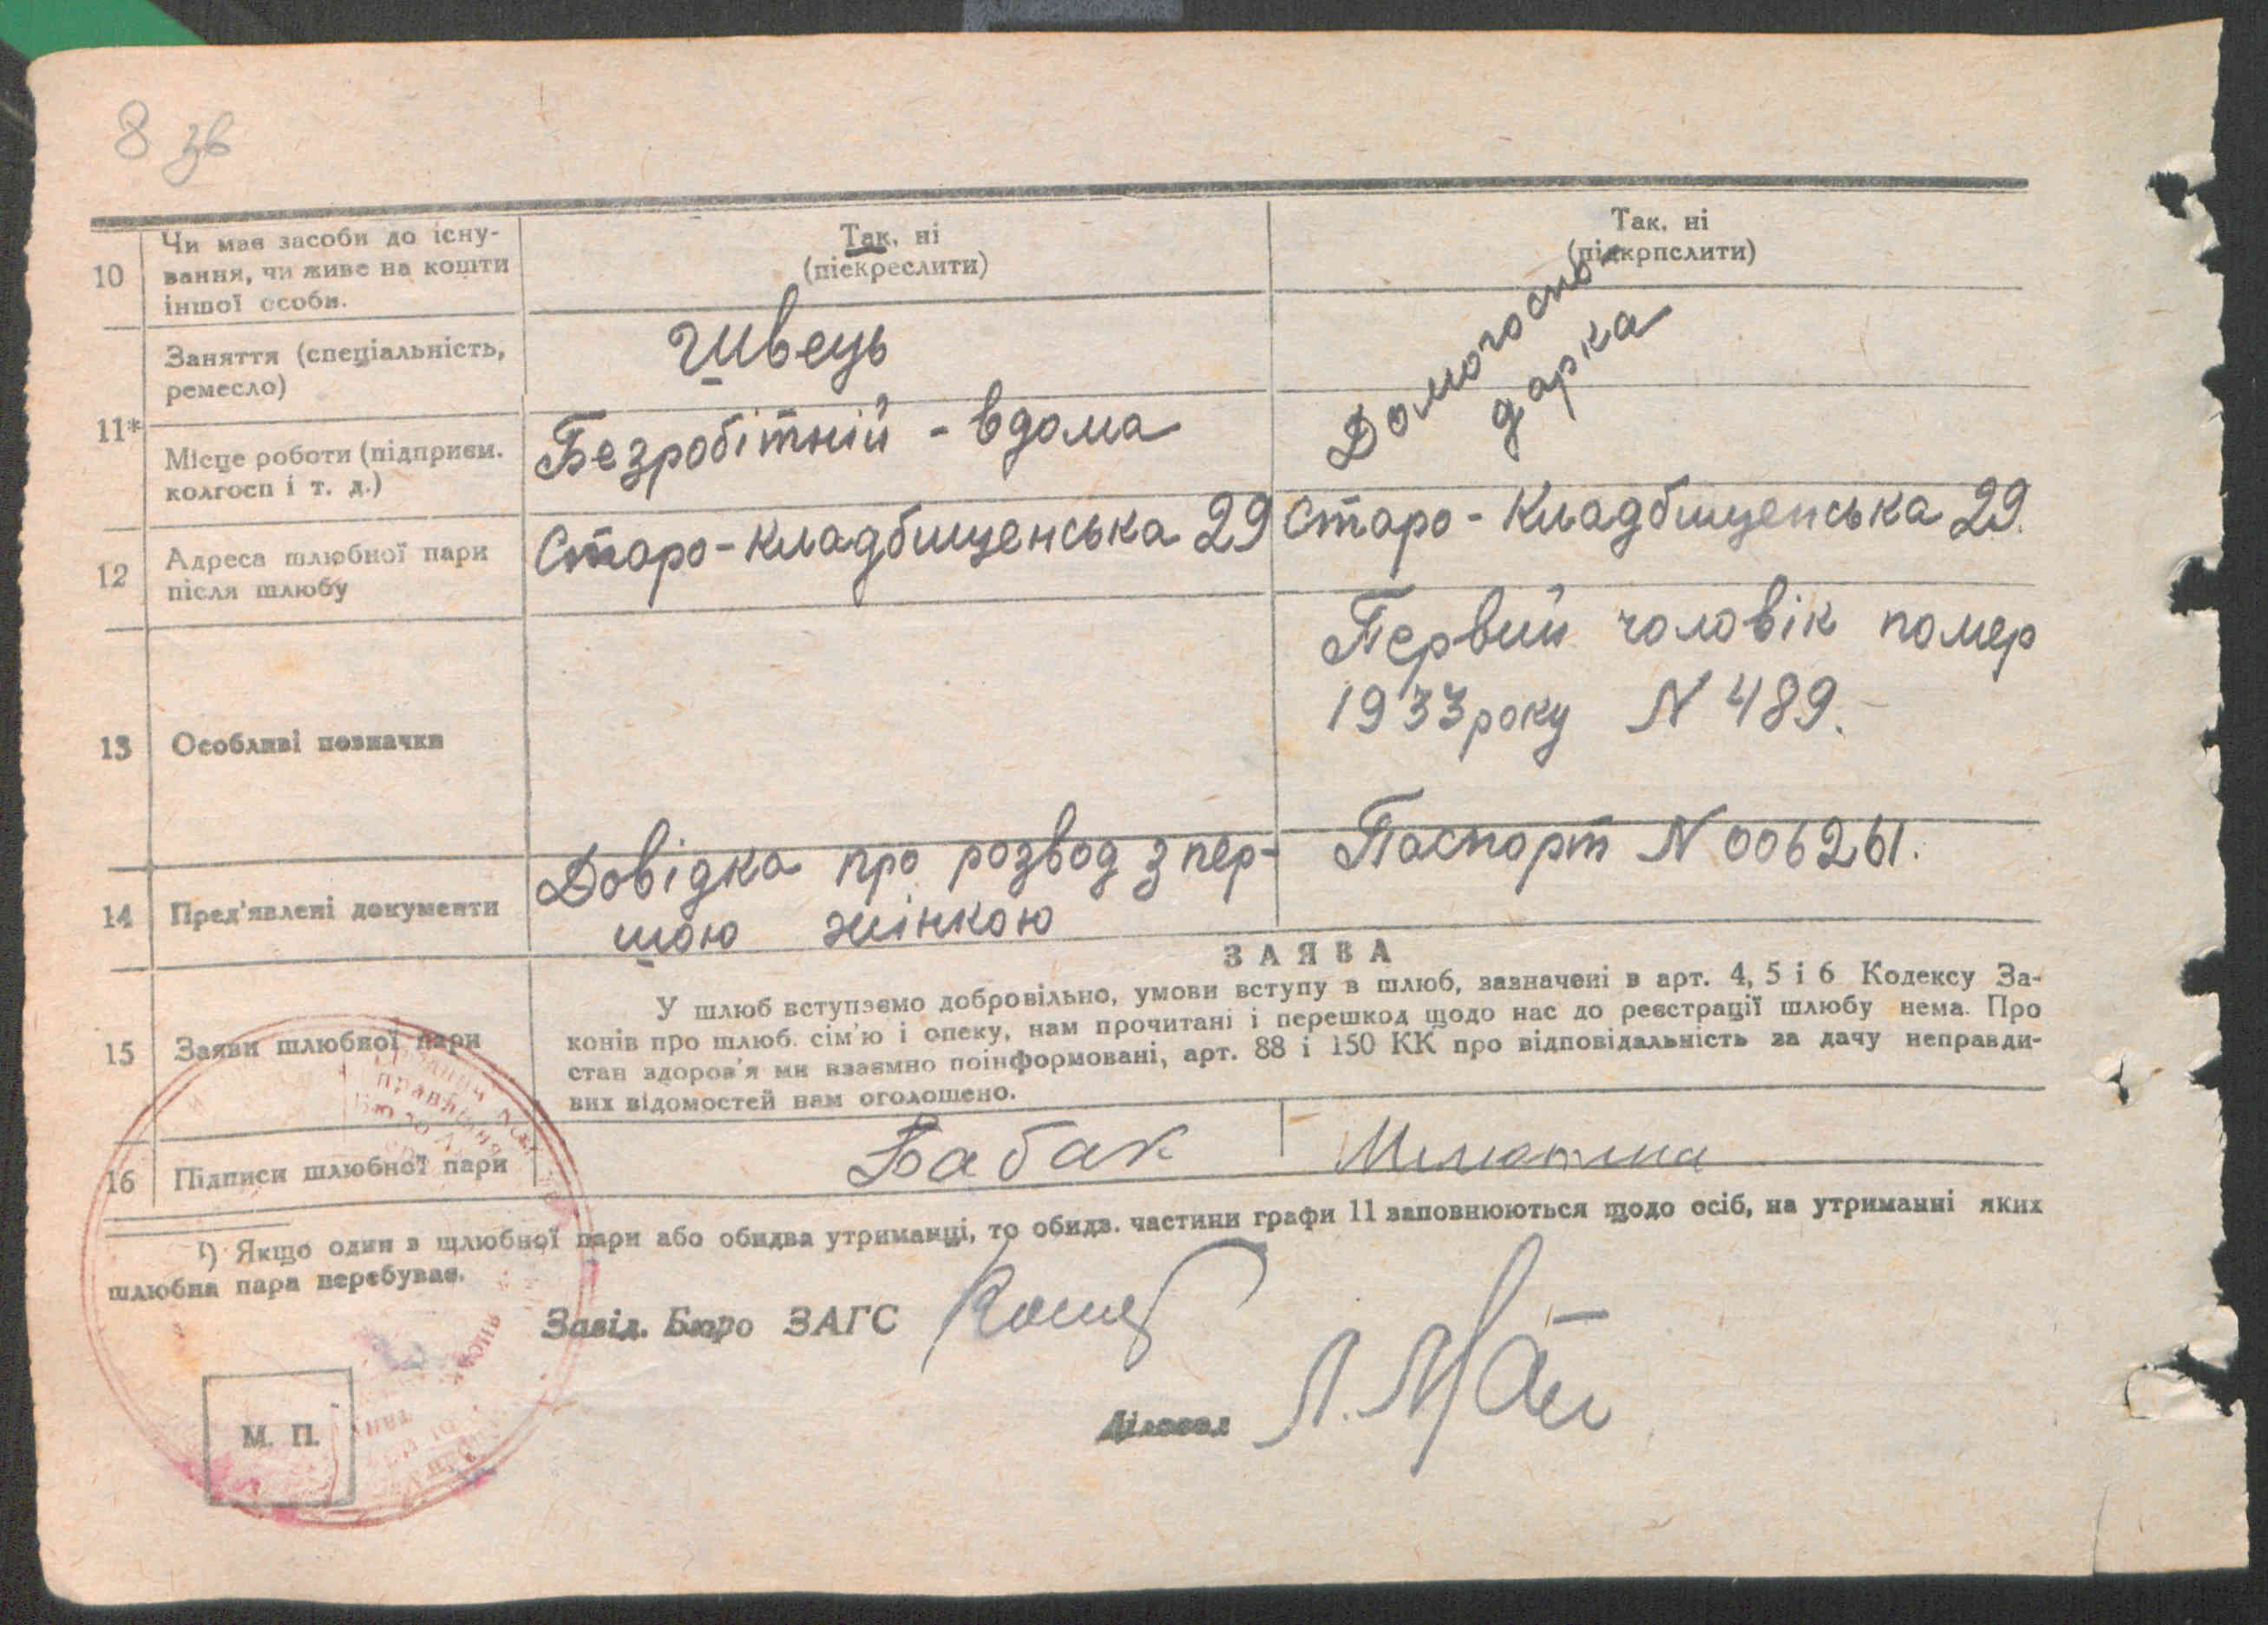 8 зв
10
Чи має засоби до існу-
вання, чи живе на кошти
іншої особи.
Так, ні
(піекреслити)
Так, ні
(підкрпслити)
11*
Заняття (спеціальність,
ремесло)
Швець
Домогоспо-
дарка
Місце роботи (підприєм.
колгосп і т. д.)
Безробітній - вдома
12
Адреса шлюбної пари
після шлюбу
Старо-кладбищенська 29
Старо-Кладбищенська 29.
13
Особливі позначки
Первий чоловік помер
1933 року N 489.
14
Пред'явлені документи
Довідка про розвод з пер-
шою жінкою
Паспорт N 006261.
15
Заяви шлюбної пари
ЗАЯВА
У шлюб вступаємо добровільно, умови вступу в шлюб, зазначені в арт. 4, 5 і 6 Кодексу За-
конів про шлюб. сім'ю і опеку, нам прочитані і перешкод щодо нас до реєстрації шлюбу нема. Про
стан здоров'я ми взаємно поінформовані, арт. 88 і 150 КК про відповідальність за дачу неправди-
вих відомостей нам оголошено.
16
Підписи шлюбної пари
Бабак
¹) Якщо один з шлюбної пари або обидва утриманці, то обидв. частини графи 11 заповнюються щодо осіб, на утриманні яких
шлюбна пара перебуває.
Завід. Бюро ЗАГС
Діловод
М. П.